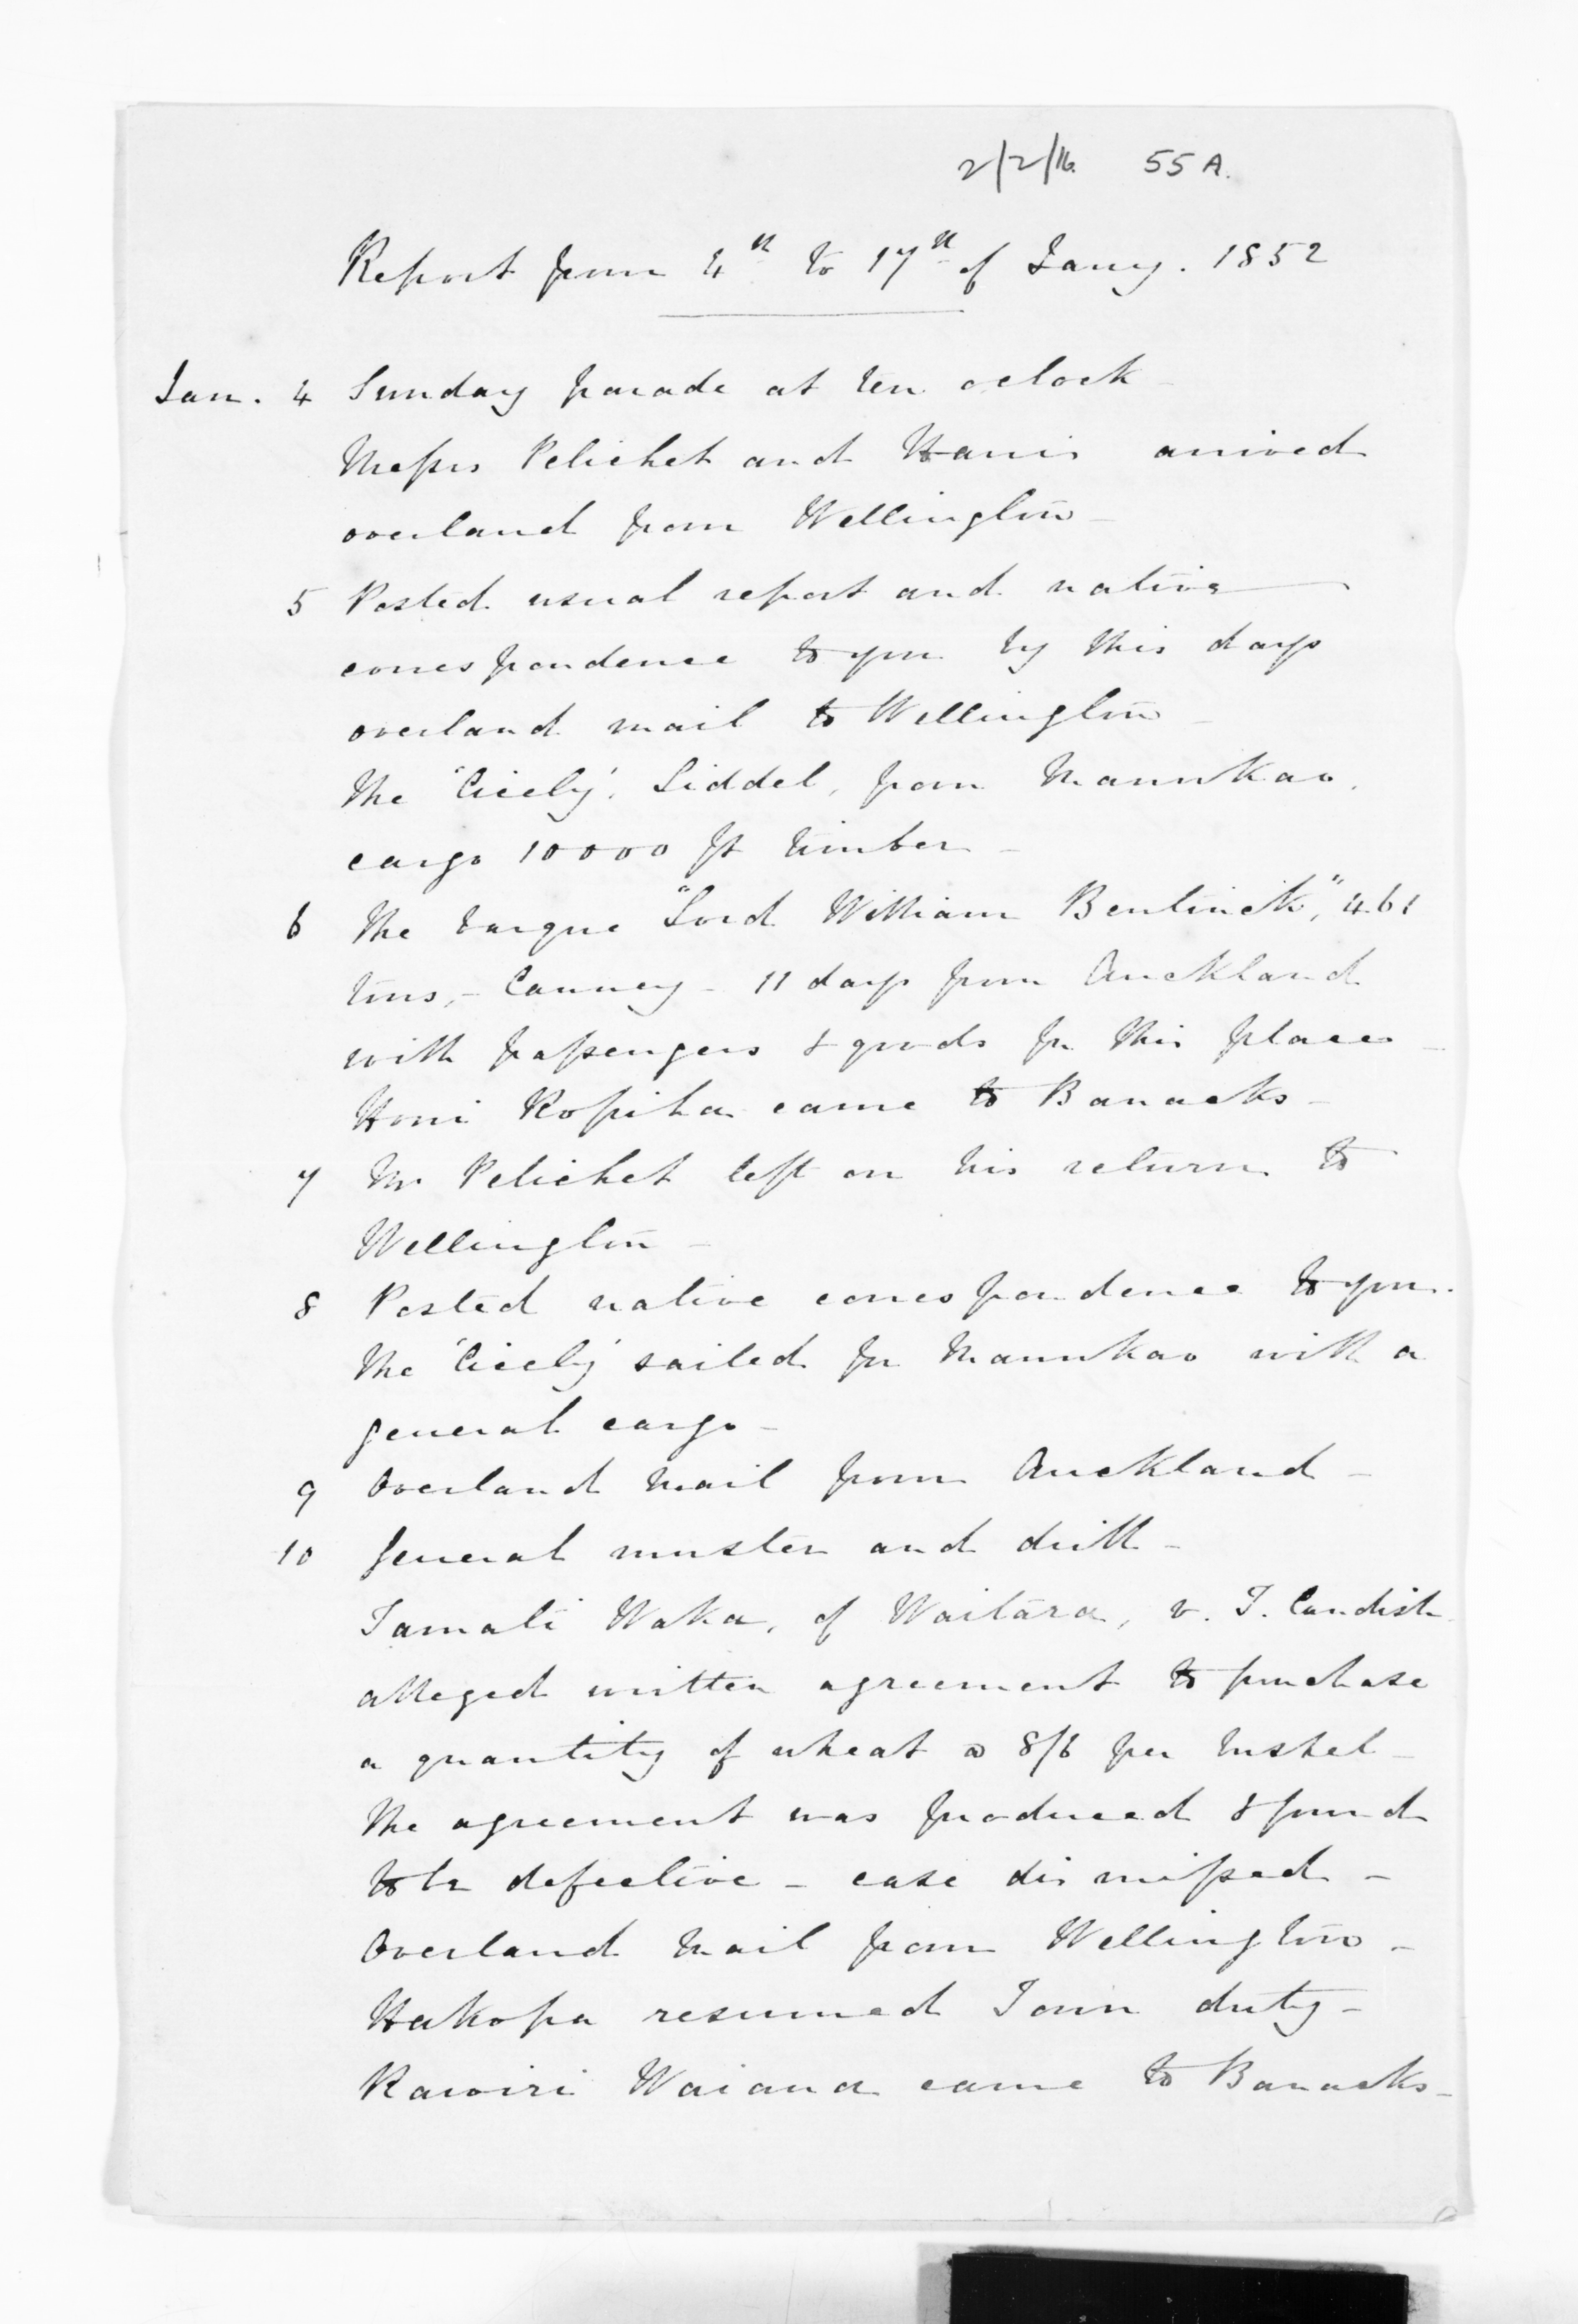 2/2/16 55A.
Report from 4th to 17th of Jany. 1852
Jan. 4 Sunday parade at ten oclock -
Messrs Pelichet and Harris arrived
overland from Wellington -
5 Posted usual report and native
correspondence to you by this days
overland mail to Wellington -
The 'Cicely', Liddel, from Manukao,
cargo 10000 ft timber -
6 The barque "Lord William Bentinck", 461
tons, - Canney - 11 days from Auckland
with passengers & goods for this place -
Honi Ropiha came to Barracks -
7 Mr Pelichet left on his return to
Wellington -
8 Posted native correspondence to you.
The 'Cicely' sailed for Manukao with a
general cargo -
9 Overland mail from Auckland -
10 General muster and drill -
Tamati Waka, of Waitara, v. T. Candish
alleged written agreement to purchase
a quantity of wheat @ 8/6 per bushel -
The agreement was produced & found
to be defective - case dismissed -
Overland mail from Wellington -
Hakopa resumed Town duty -
Rawiri Waiaua came to Barracks -